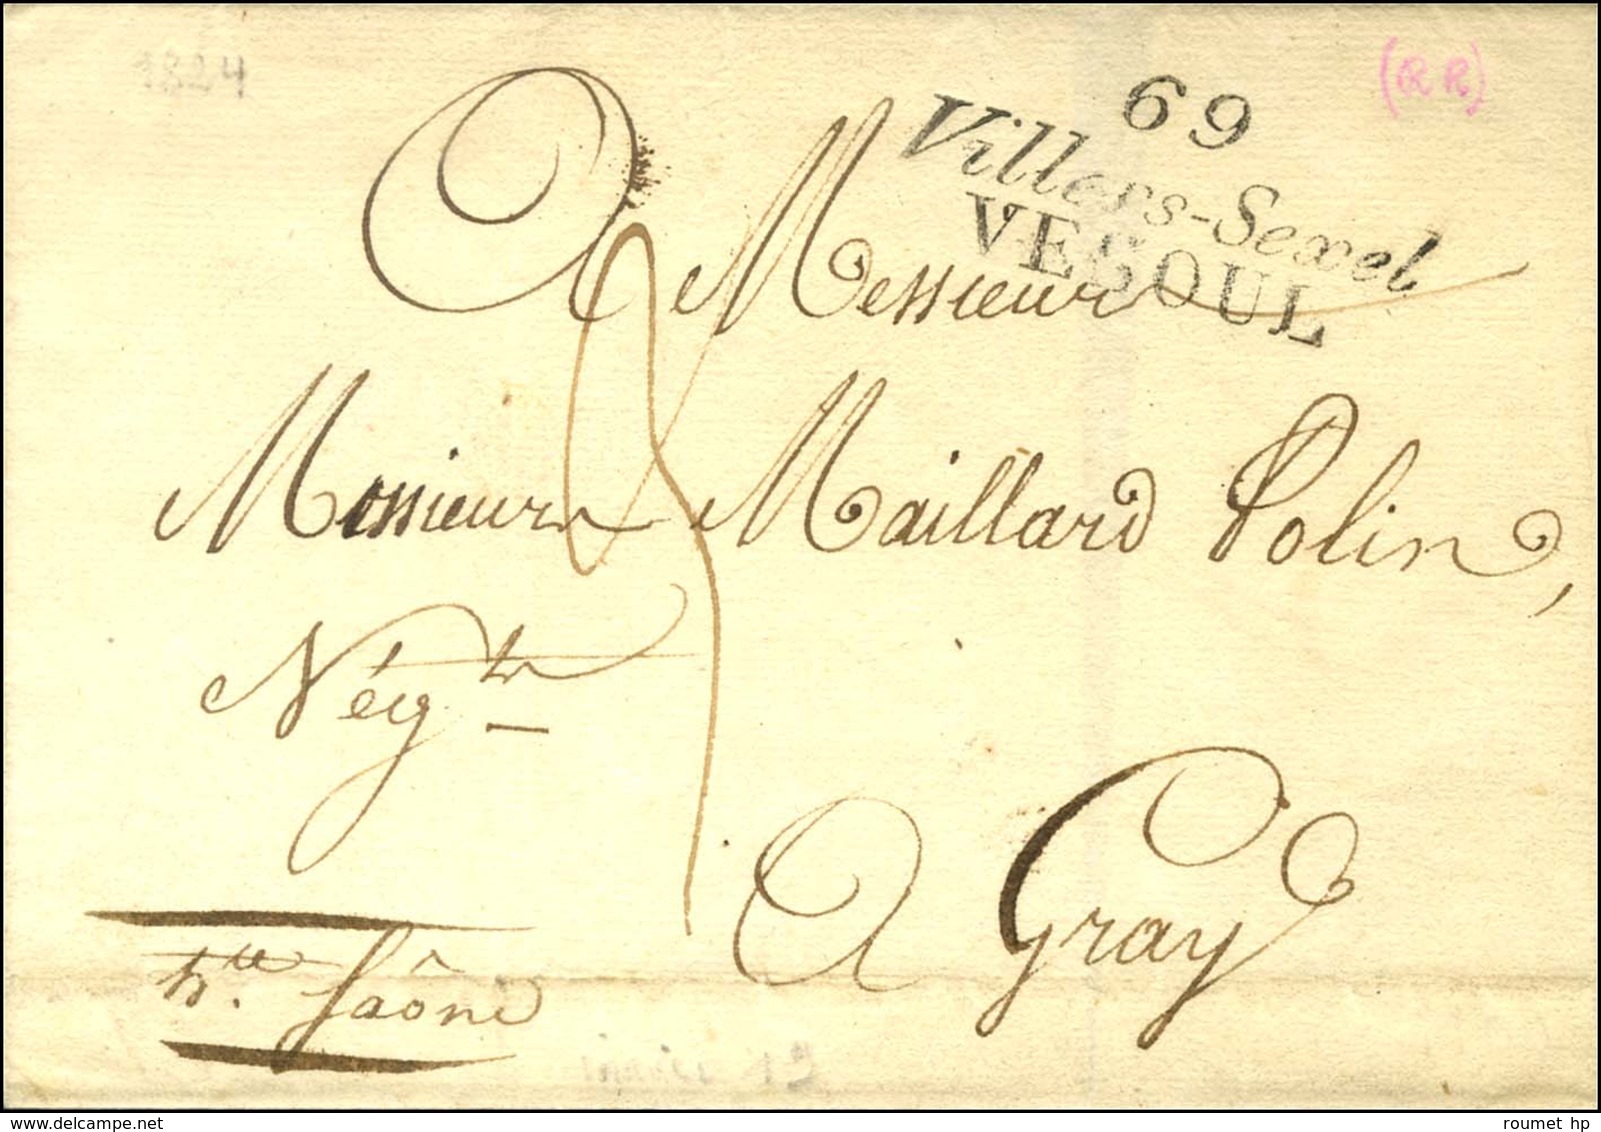 1824
(RR)
69
Villers-Sexel
VESOUL
A Messieur
Monsieur Maillard Polin,
Nég.t
A Gray
h.te Saône
roumet hp